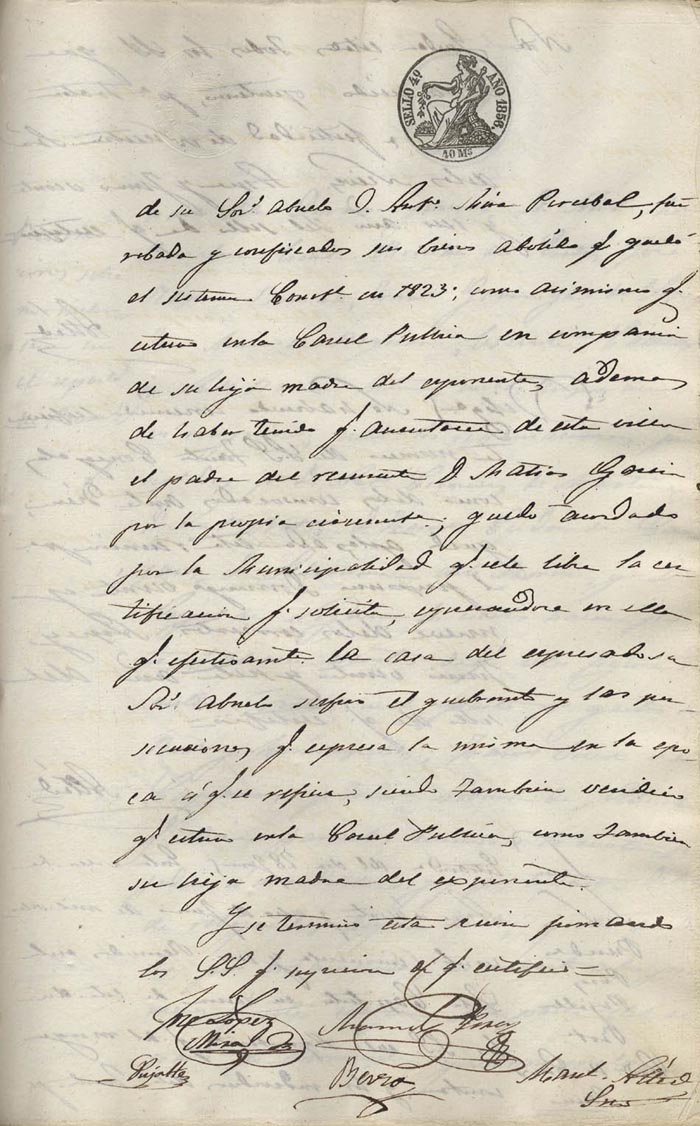 SELLO 4º AÑO 1856.
40 Ms
de su Sor. abuelo D. Anto. Mira Percebal, fue
robada y confiscados sus bienes abolido q. quedó
el sistema Constl. en 1823; como asimismo q.
estuvo en la Carcel Publica en compañia
de su hija madre del esponente, ademas
de haber tenido q. ausentarse de esta
el padre del D. Matias Garcia
por la propia; quedó acordado
por la Municipalidad q. se le libre la cer-
tificacion q. solicita, espresandose en ella
q. efectivamte. la casa del espresado su
Sor. abuelo sufrio el quebranto y las per-
secuciones q. espresa la misma en la epo-
ca á q. se refiere, siendo tambien veridico
q. estuvo en la Carcel Publica, como tambien
su hija madre del exponente.
Y se termino esta firmando
los S.S. q. supieron de q. certifico =
Jose Lopez Manuel Perez
Mira
Pujalte Berza Manl.
Srio